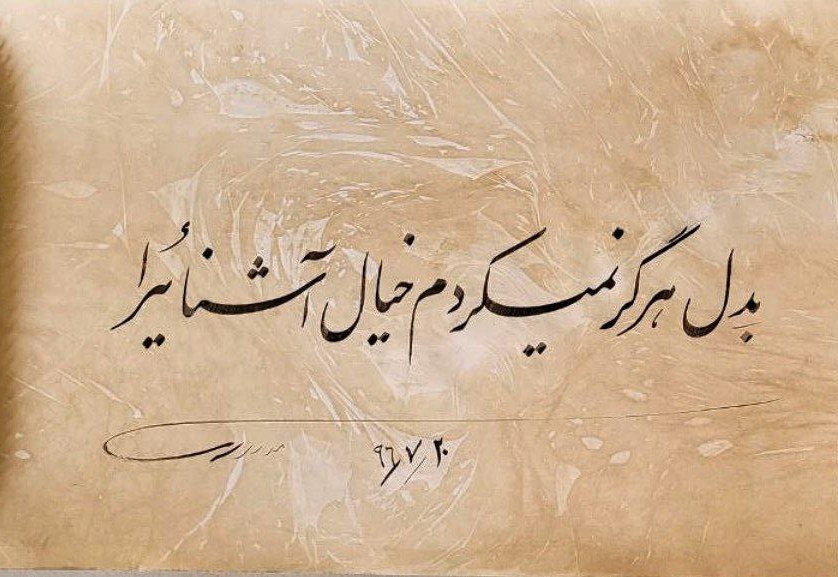 بدل هرگز نمیکردم خیال آشنائیرا
۹۶/۷/۲۰